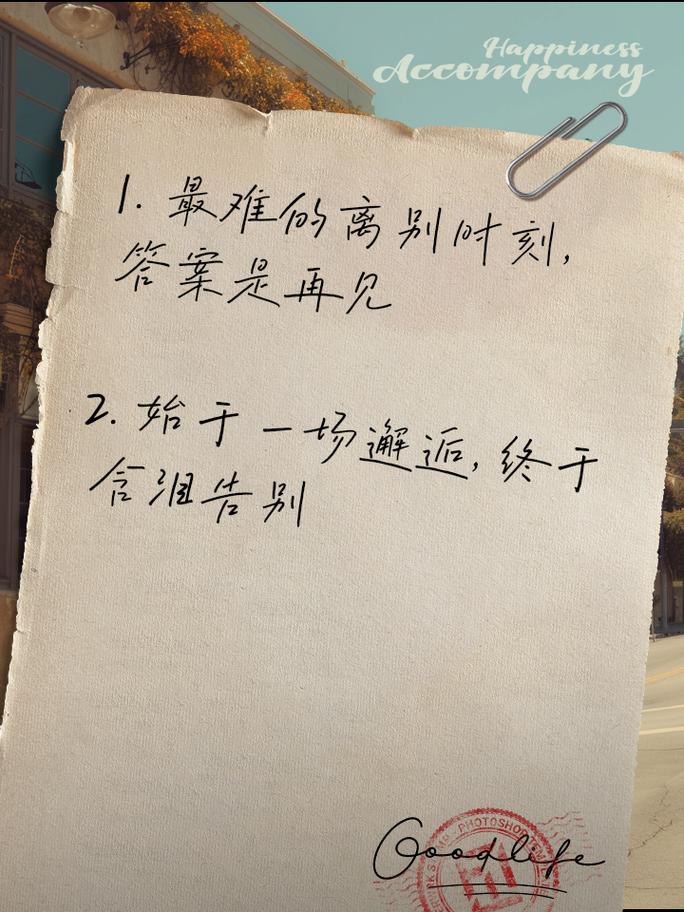 Happiness
Accompany
1. 最难的离别时刻,
答案是再见
2. 始于一场邂逅, 终于
含泪告别
PHOTOSHOP
Goodlife